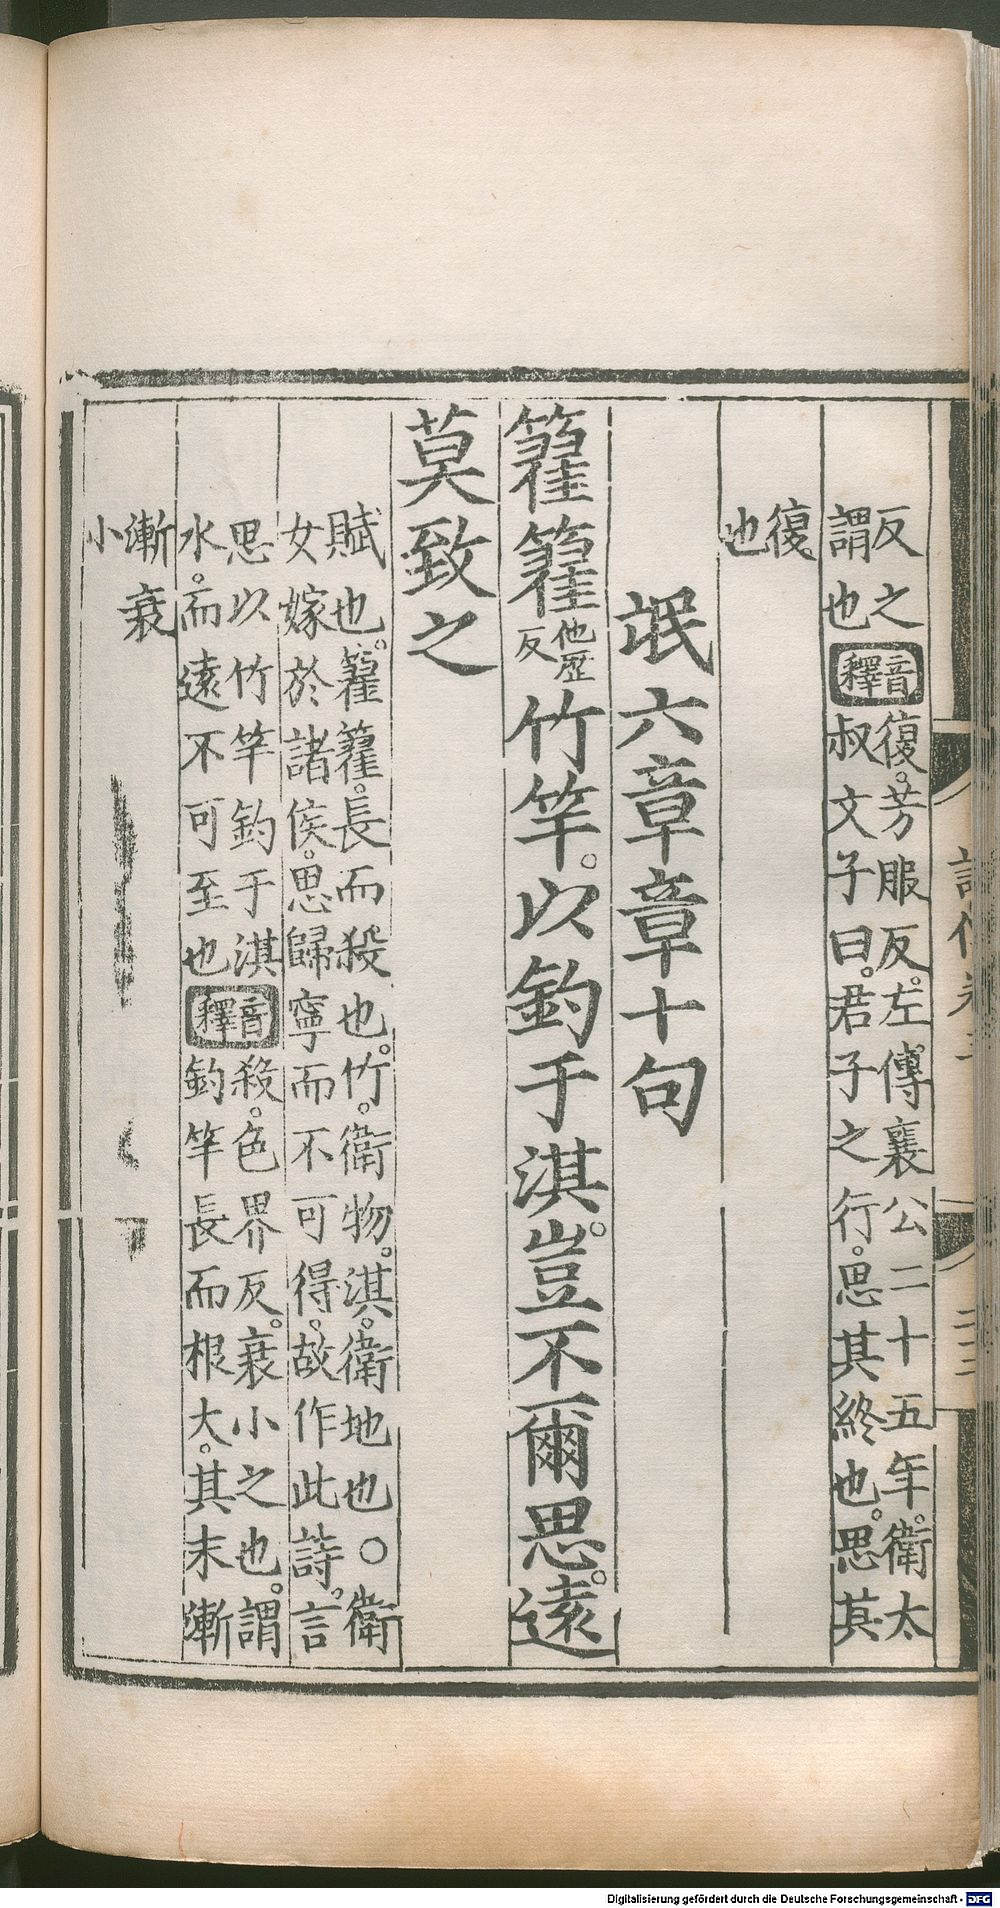 反之【音釋】復。芳服反。左傳襄公二十五年。衛太
謂也叔文子曰。君子之行。思其終也。思其
復。
也
氓六章章十句
籊籊他歷反竹竿。以釣于淇。豈不爾思。遠
莫致之
賦也。籊籊。長而殺也。竹。衛物。淇。衛地也○衛
女嫁於諸侯。思歸寧而不可得。故作此詩。言
思以竹竿釣于淇【音釋】殺。色界反。衰小之也。謂
水。而遠不可至也釣竿長而根大。其末漸
漸衰
小
Digitalisierung gefördert durch die Deutsche Forschungsgemeinschaft - DFG